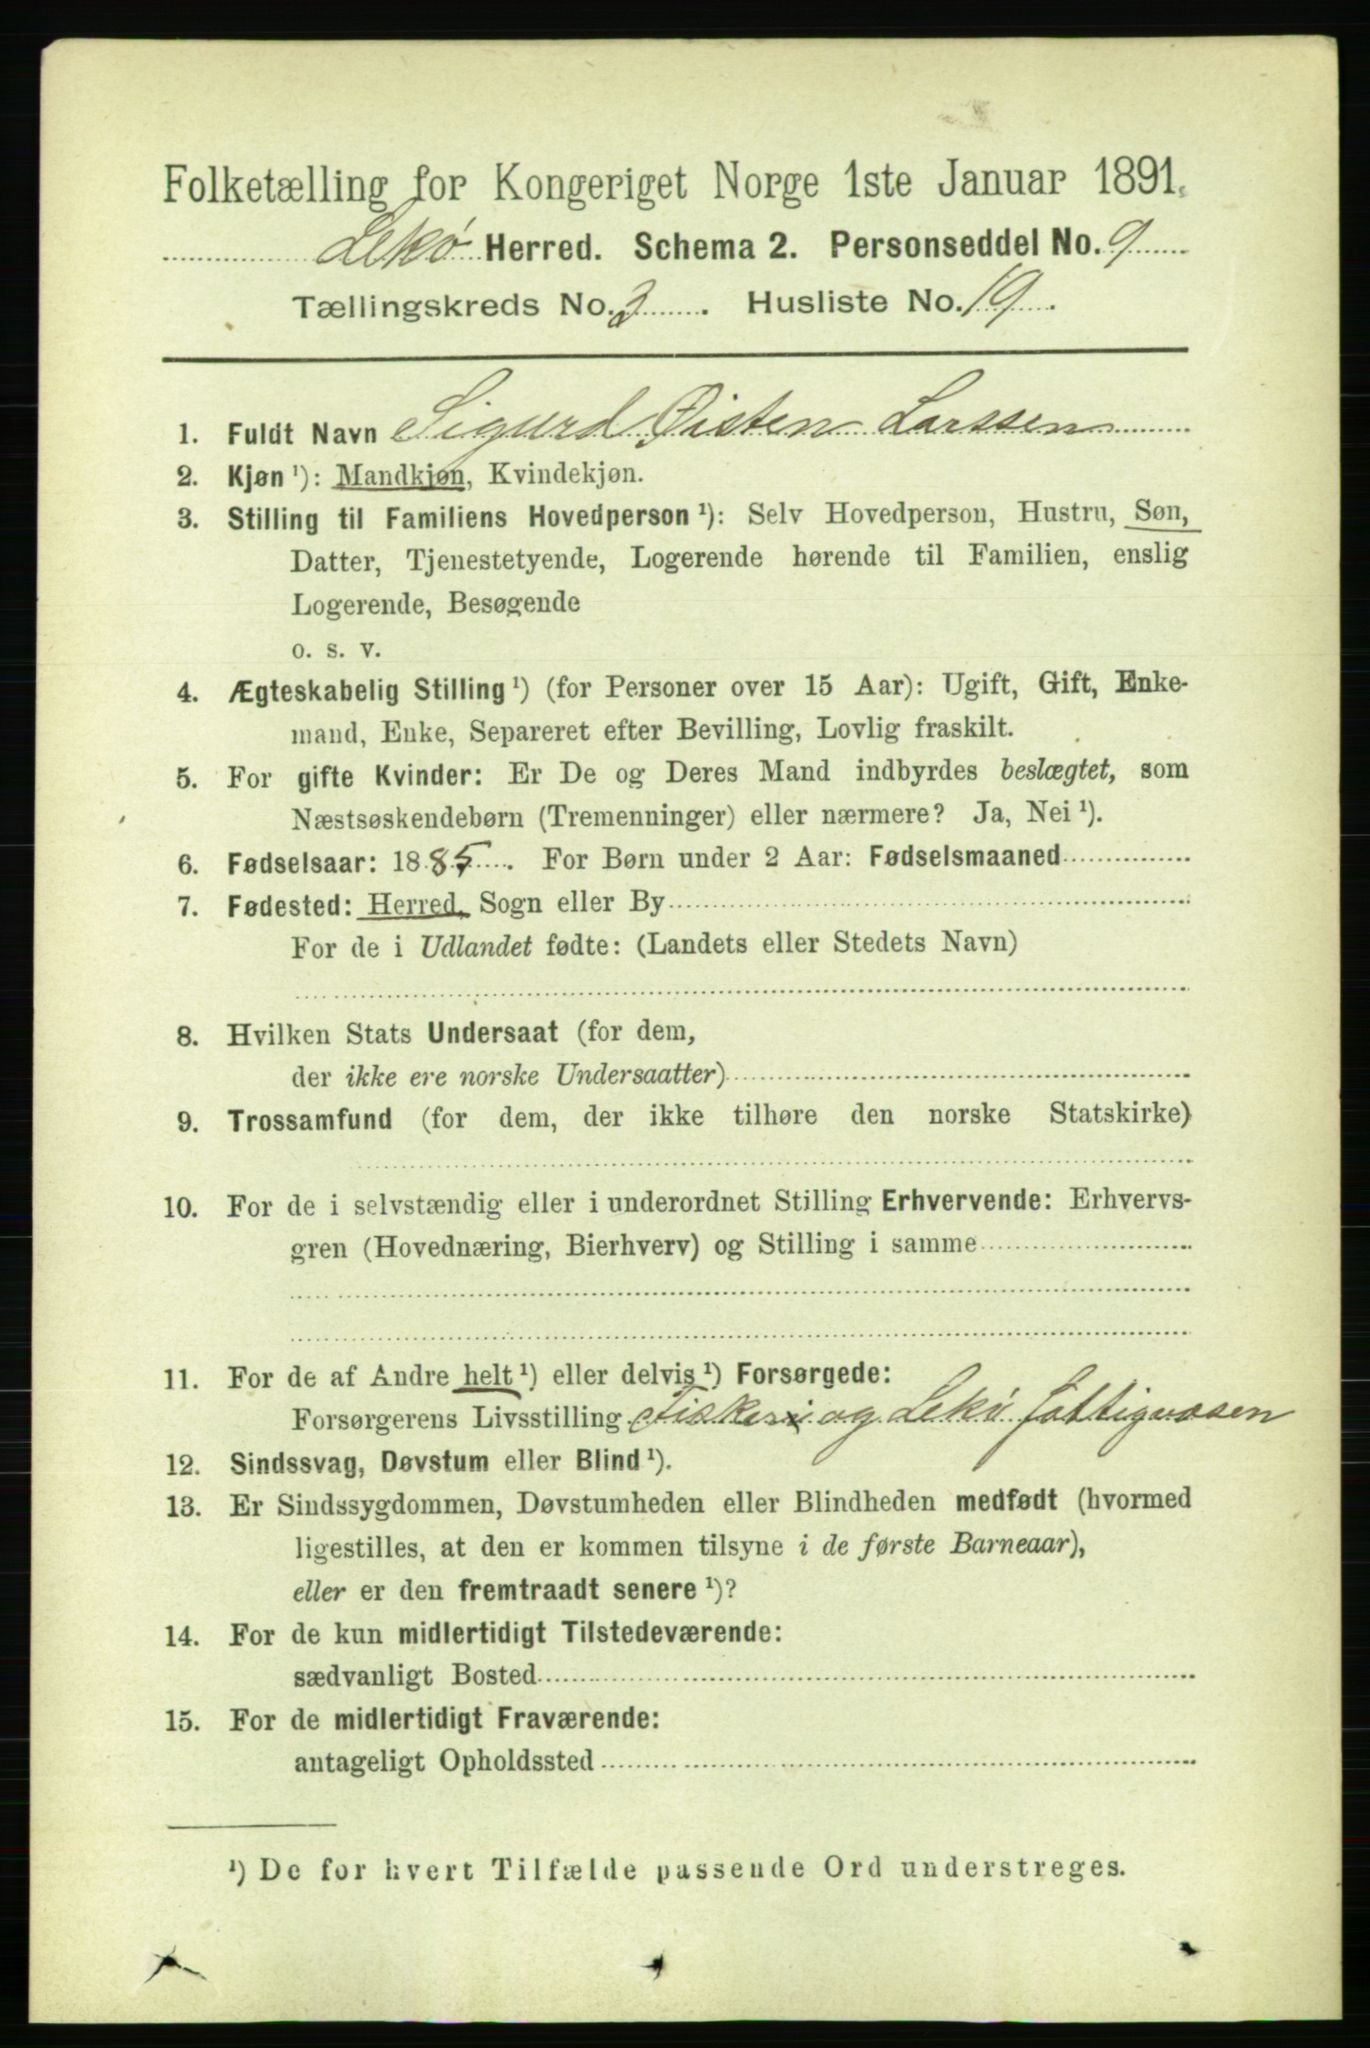 Folketælling for Kongeriget Norge 1ste Januar 1891.
Lekø Herred. Schema 2. Personseddel No. 9
Tællingskreds No. 3. Husliste No. 19.
1. Fuldt Navn Sigurd Øisten Larssen
2. Kjøn ¹): Mandkjøn, Kvindekjøn.
3. Stilling til Familiens Hovedperson ¹): Selv Hovedperson, Hustru, Søn,
Datter, Tjenestetyende, Logerende hørende til Familien, enslig
Logerende, Besøgende
o. s. v.
4. Ægteskabelig Stilling ¹) (for Personer over 15 Aar): Ugift, Gift, Enke-
mand, Enke, Separeret efter Bevilling, Lovlig fraskilt.
5. For gifte Kvinder: Er De og Deres Mand indbyrdes beslægtet, som
Næstsøskendebørn (Tremenninger) eller nærmere? Ja, Nei ¹).
6. Fødselsaar: 1885. For Børn under 2 Aar: Fødselsmaaned
7. Fødested: Herred, Sogn eller By
For de i Udlandet fødte: (Landets eller Stedets Navn)
8. Hvilken Stats Undersaat (for dem,
der ikke ere norske Undersaatter)
9. Trossamfund (for dem, der ikke tilhøre den norske Statskirke)
10. For de i selvstændig eller i underordnet Stilling Erhvervende: Erhvervs-
gren (Hovednæring, Bierhverv) og Stilling i samme
11. For de af Andre helt ¹) eller delvis ¹) Forsørgede:
Forsørgerens Livsstilling Fiskeri og Lekø Fattigvæsen
12. Sindssvag, Døvstum eller Blind ¹).
13. Er Sindssygdommen, Døvstumheden eller Blindheden medfødt (hvormed
ligestilles, at den er kommen tilsyne i de første Barneaar),
eller er den fremtraadt senere ¹)?
14. For de kun midlertidigt Tilstedeværende:
sædvanligt Bosted
15. For de midlertidigt Fraværende:
antageligt Opholdssted
¹) De for hvert Tilfælde passende Ord understreges.